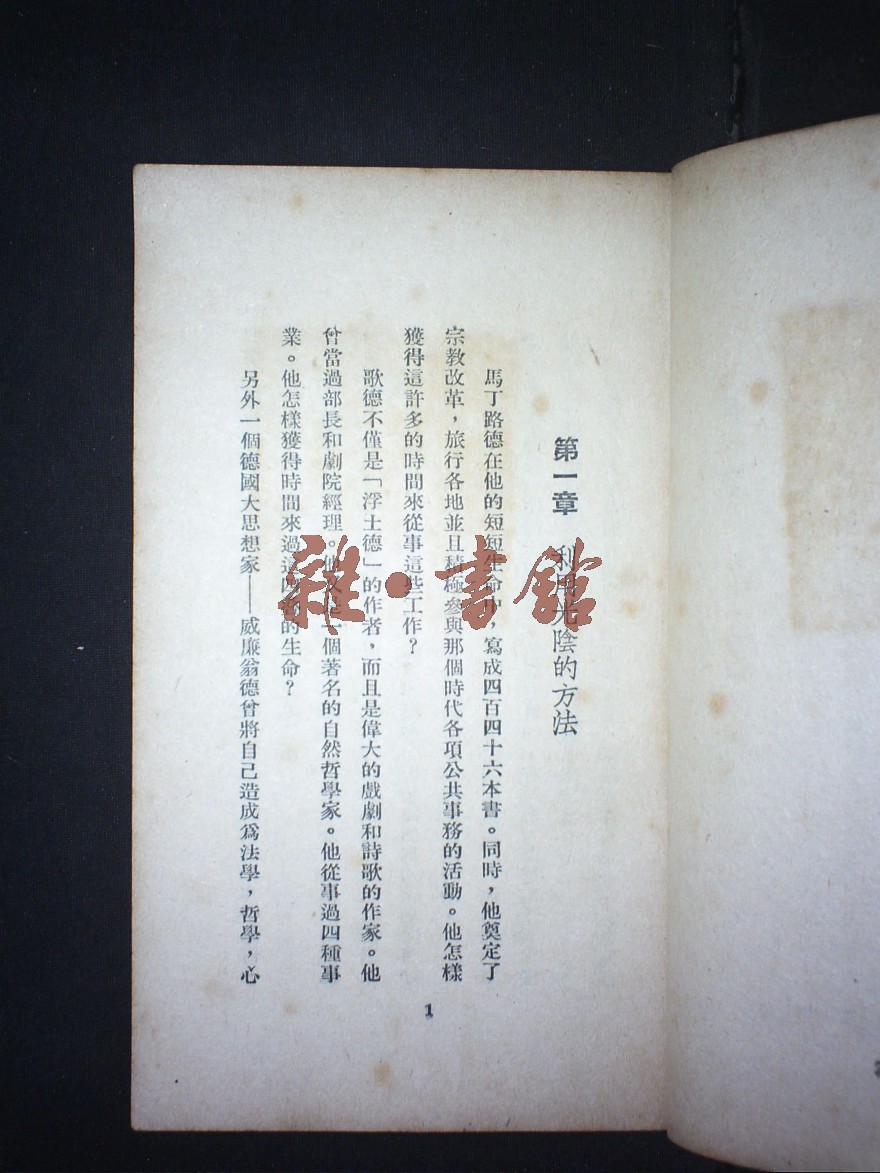 第一章 利用光陰的方法
馬丁路德在他的短短生命中，寫成四百四十六本書。同時，他奠定了
宗教改革，旅行各地並且積極參與那個時代各項公共事務的活動。他怎樣
獲得這許多的時間來從事這些工作？
歌德不僅是「浮士德」的作者，而且是偉大的戲劇和詩歌的作家。他
曾當過部長和劇院經理。他又是一個著名的自然哲學家。他從事過四種事
業。他怎樣獲得時間來過這四的生命？
另外一個德國大思想家——威廉翁德曾將自己造成爲法學，哲學，心
1
雜·書館